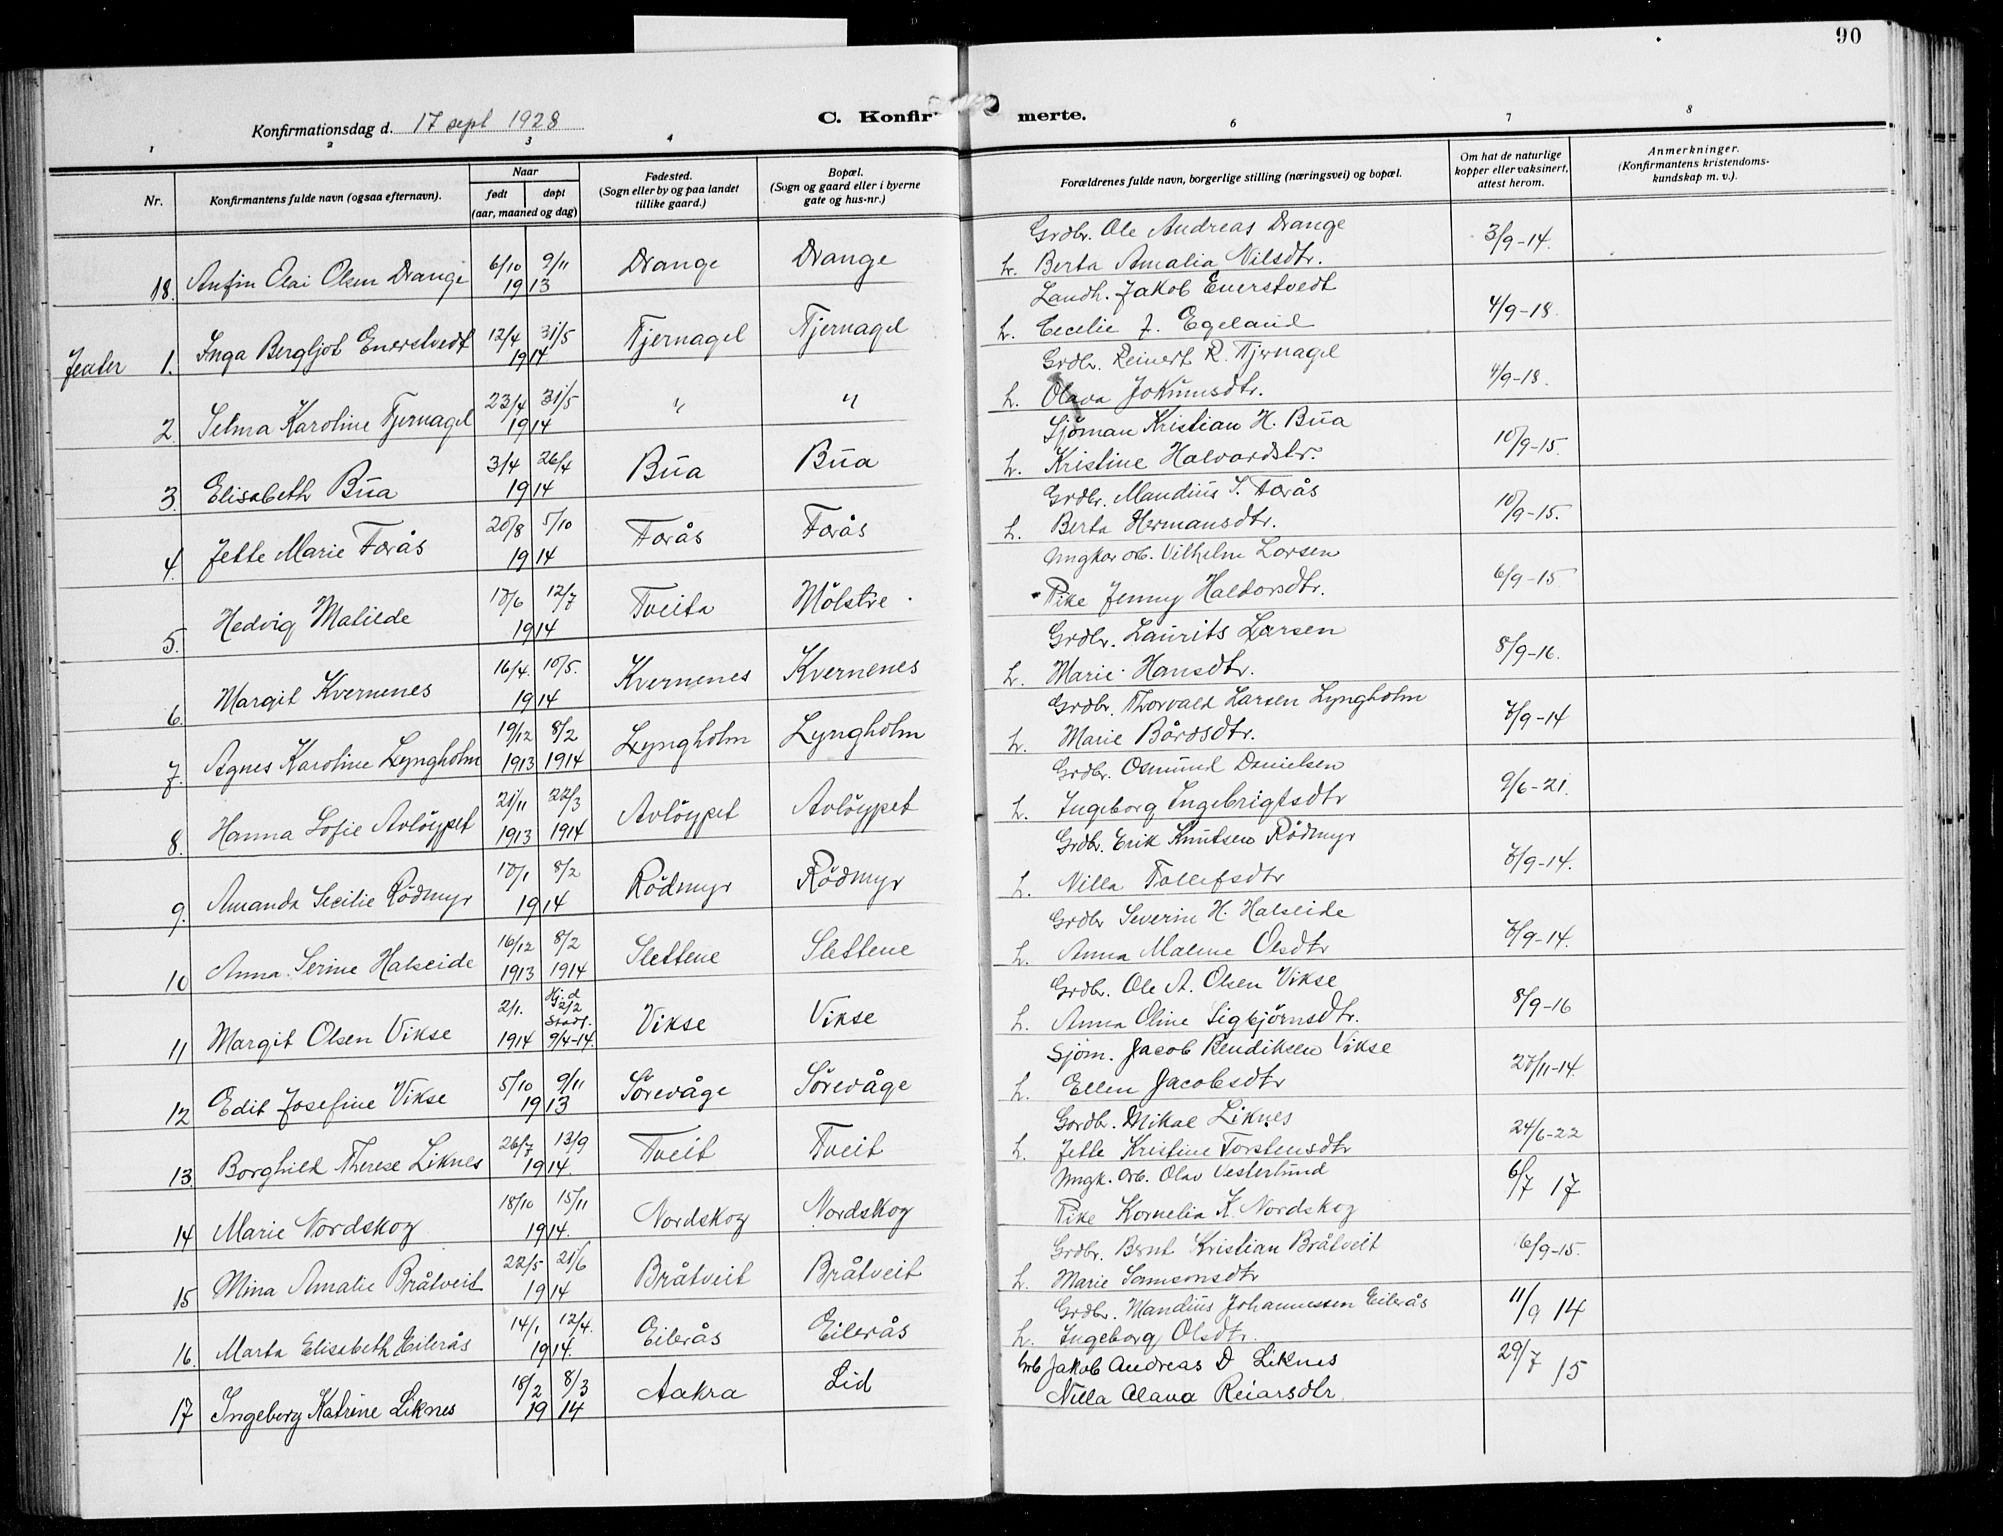 90
Konfirmationsdag d. 17 sept 1928
C. Konfirmerte.
1 2 3 4 6 7 8
Nr.
Konfirmantens fulde navn (ogsaa efternavn).
Naar
født døpt
(aar, maaned og dag)
Fødested.
(Sogn eller by og paa landet
tillike gaard.)
Bopæl.
(Sogn og gaard eller i byerne
gate og hus-nr.)
Forældrenes fulde navn, borgerlige stilling (næringsvei) og bopæl.
Om hat de naturlige
kopper eller vaksinert,
attest herom.
Anmerkninger.
(Konfirmantens kristendoms-
kundskap m. v.).
Grdbr. Ole Andreas Drange
18. Anfin Olai Olsen Drange 6/10 9/11 1913 Drange Drange h. Berta Amalia Nilsdtr. 3/9-14.
Landh. Jakob Enerstvedt
Jenter 1. Inga Bergljot Enerstvedt 12/4 31/5 1914 Tjernagel Tjernagel h. Cecilie J. Egeland 4/9-18.
Grdbr. Reinert R. Tjernagel
2 Selma Karoline Tjernagel 23/4 31/5 1914 " " h. Olava Jokumsdtr. 4/9-18.
Sjöman Kristian H. Bua
3 Elisabeth Bua 3/4 26/4 1914 Bua Bua h. Kristine Halvardsdtr. 10/9-15.
Grdbr. Mandius S. Forås
4. Jette Marie Forås 20/8 5/10 1914 Forås Forås h. Berta Hermansdtr. 10/9-15.
Ungkar arb. Vilhelm Larsen
5. Hedvig Matilde 10/6 12/7 1914 Tveita Mölstre. Pike Jenny Haldorsdtr. 6/9-15
Grdbr. Laurits Larsen
6. Margit Kvernenes 16/4. 10/5. 1914 Kvernenes Kvernenes h. Marie Hansdtr. 8/9-16.
Grdbr. Thorvald Larsen Lyngholm
7. Agnes Karoline Lyngholm 19/12 1913 8/2 1914 Lyngholm Lyngholm h. Marie Bårdsdtr. 7/9-14
Grdbr. Osmund Danielsen
8. Hanna Sofie Avlöypet 21/11 1913 22/3 1914 Avlöypet Avlöypet h. Ingeborg Ingebrigtsdtr 9/6-21.
Grdbr. Erik Knutsen Rödmyr
9. Amanda Secilie Rödmyr 10/1 8/2 1914 Rödmyr Rödmyr h. Nilla Tollefsdtr 7/9-14.
Grdbr Severin H. Halseide
10 Anna Serine Halseide 16/12 1913 8/2 1914 Slettene Slettene h. Anna Malene Olsdtr 7/9-14.
Grdbr. Ole A. Olsen Vikse
11 Margit Olsen Vikse 2/1. 1914 Hj.d 2/2 Stadf. 9/4-14. Vikse Vikse h. Anna Oline Sigbjörnsdtr. 8/9-16
Sjöm. Jacob Bendiksen Vikse
12 Edit Josefine Vikse 5/10 9/11 1913 Sörevåge Sörevåge h. Ellen Jacobsdtr 27/11-14.
Gardbr. Mikal Liknes
13. Borghild Therese Liknes 26/7 13/9 1914. Tveit Tveit h. Jette Kristine Torstensdtr 24/6-22
Ungk. Arb. Olav Vesterlund
14 Marie Nordskog 18/10 15/11 1914. Nordskog Nordskog Pike Kornelia K. Nordskog 6/7 17
Grdbr. Bernt Kristian Bråtveit
15 Mina Amalie Bråtveit 22/5 21/6 1914 Bråtveit Bråtveit h. Marie Samsonsdtr 6/9-15.
Grdbr. Mandius Johannessen Eilerås
16. Marta Elisabeth Eilerås 14/1 12/4. 1914. Eilerås Eilerås h. Ingeborg Olsdtr. 11/9 14
Jakob Andreas D Liknes
17 Ingeborg Katrine Liknes 18/2 8/3 1914 Aakra Lid Nilla Olava Reiarsdtr. 29/7 15